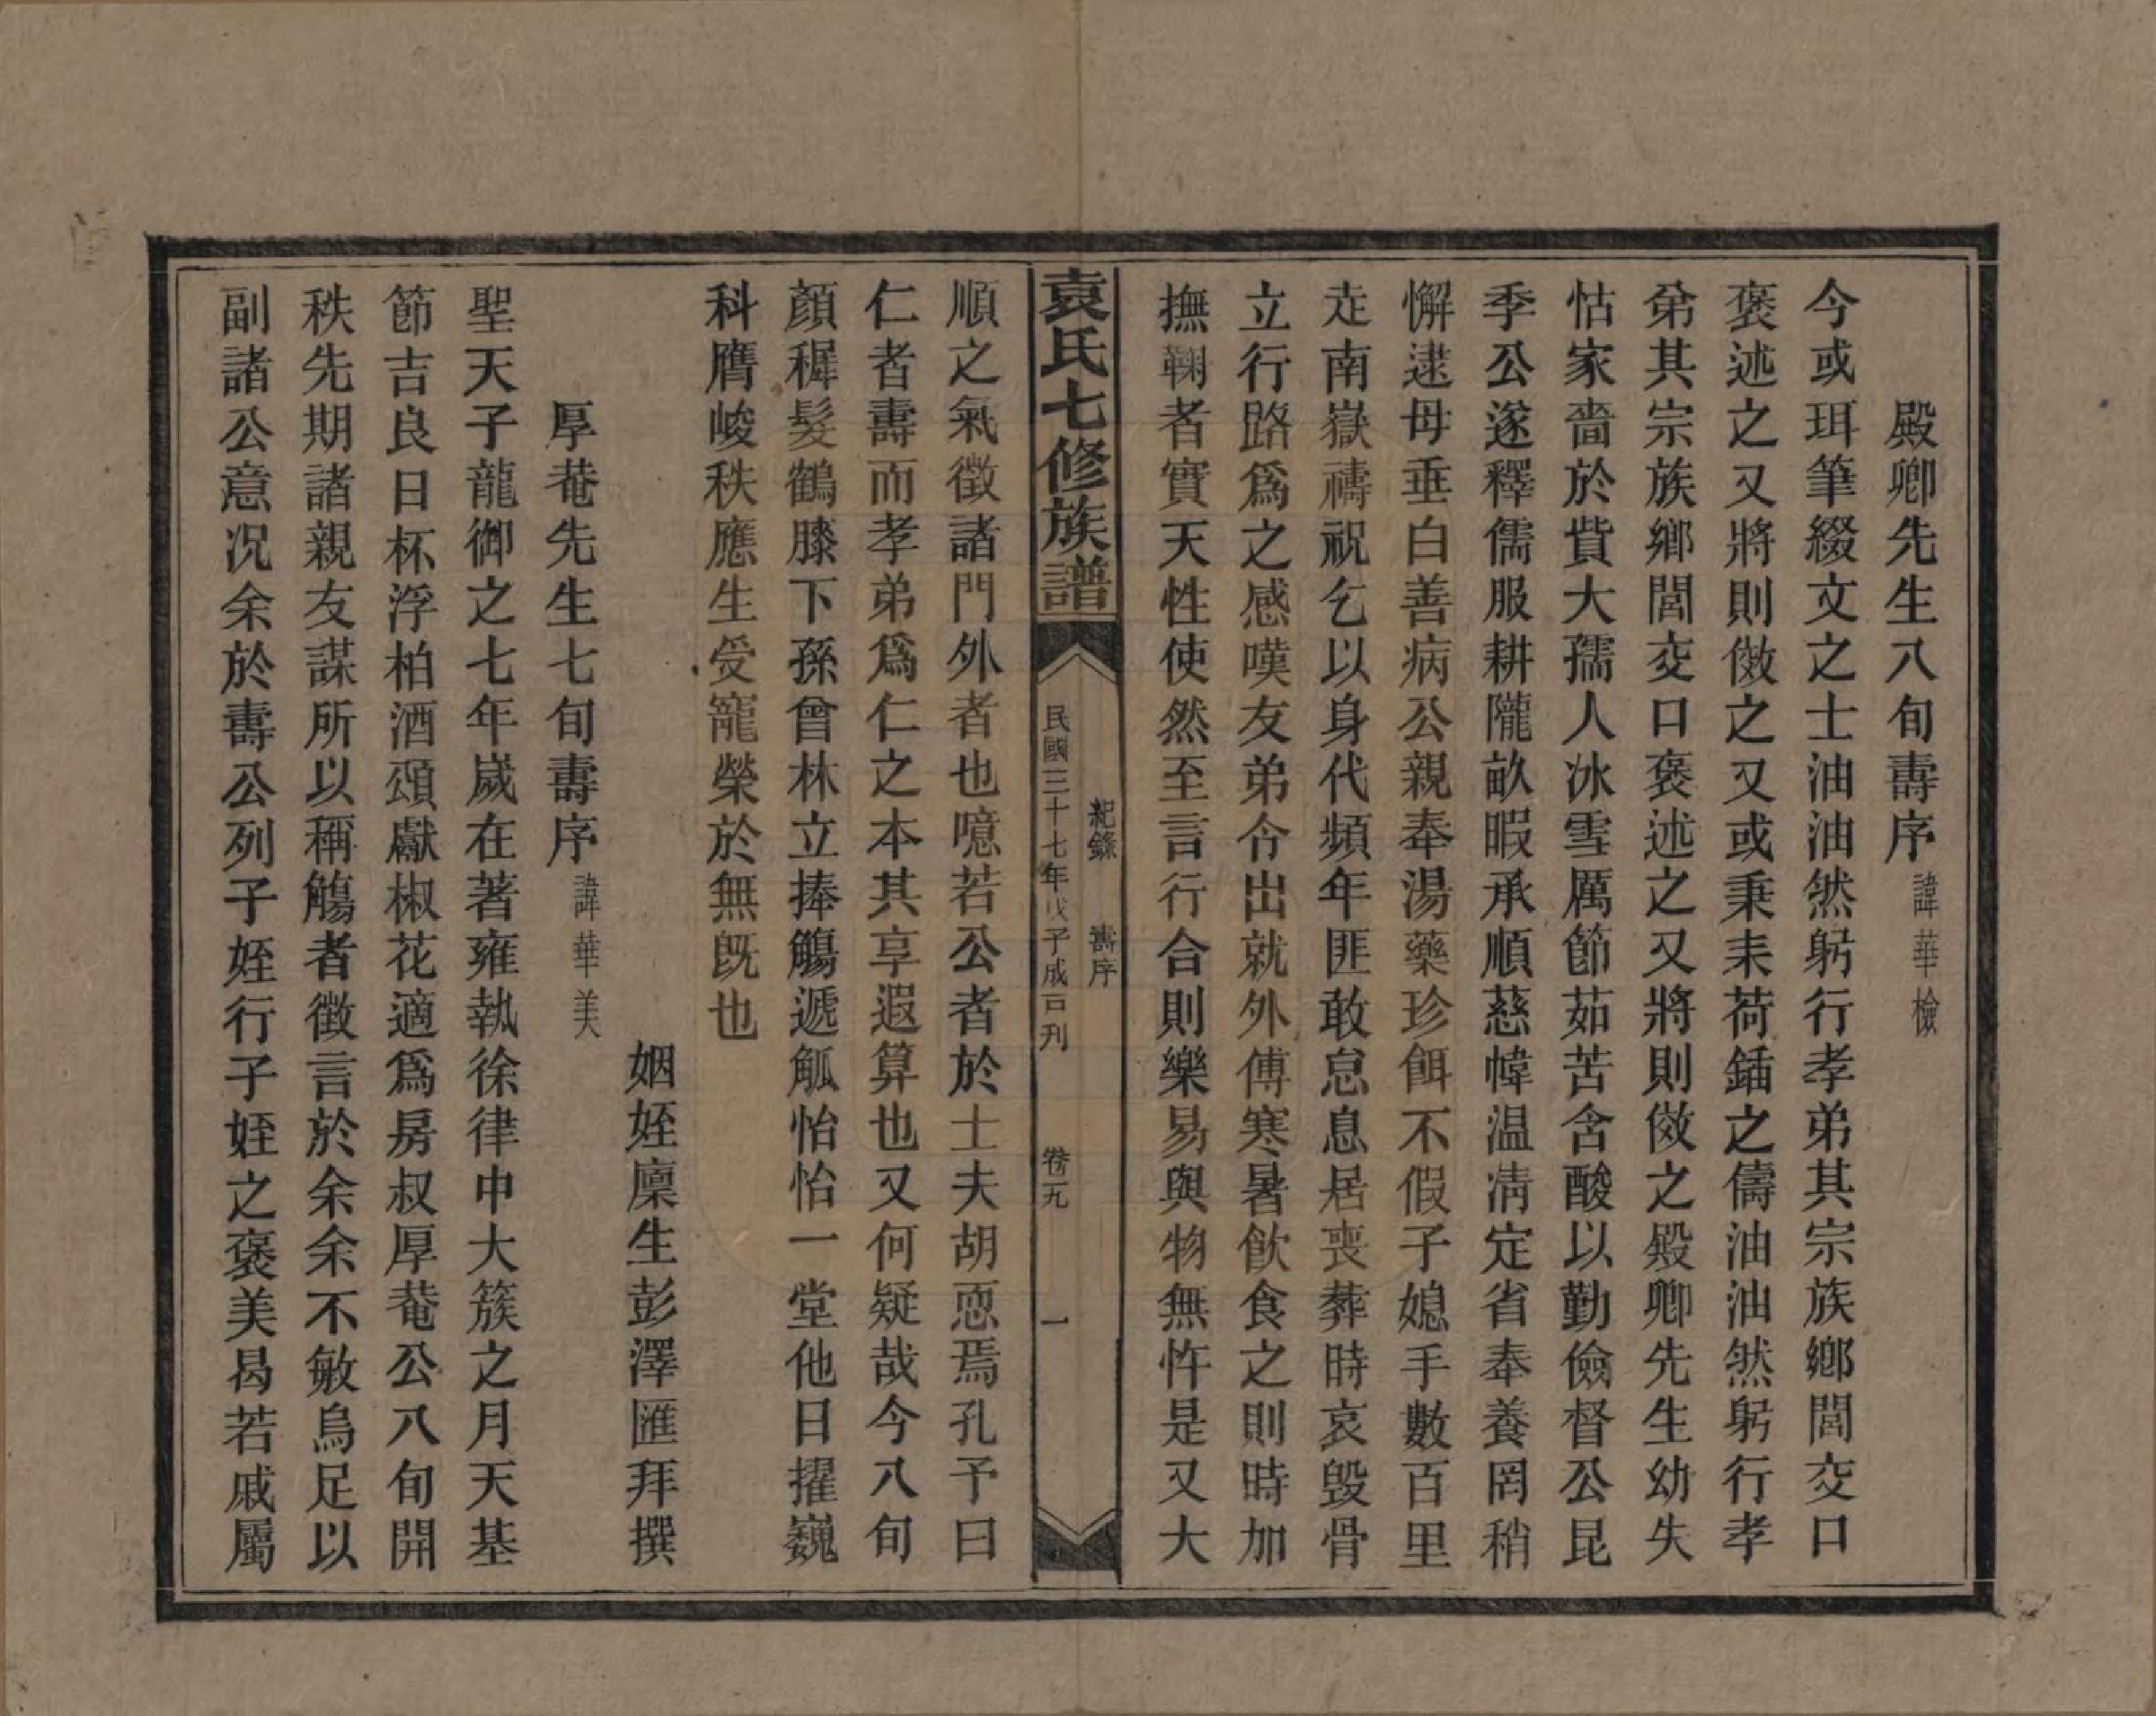 殿卿先生八旬壽序諱華檢
今或珥筆綴文之士油油然躬行孝弟其宗族鄉閭交口
褒述之又將則傚之又或秉耒荷鍤之儔油油然躬行孝
弟其宗族鄉閭交口褒述之又將則傚之殿卿先生幼失
怙家嗇於貲大孺人冰雪厲節茹苦含酸以勤儉督公昆
季公遂釋儒服耕隴畝暇承順慈幃温凊定省奉養罔稍
懈逮母垂白善病公親奉湯藥珍餌不假子媳手數百里
走南嶽禱祝乞以身代頻年匪敢怠息居喪葬時哀毀骨
立行路爲之感嘆友弟令出就外傅寒暑飲食之則時加
撫鞠者實天性使然至言行合則樂易與物無忤是又大
袁氏七修族譜
紀錄 壽序
民國三十七年戊子成吉刋 卷九 一
順之氣徵諸門外者也噫若公者於士夫胡恧焉孔予曰
仁者壽而孝弟爲仁之本其享遐算也又何疑哉今八旬
顏穉髮鶴膝下孫曾林立捧觴遞觚怡怡一堂他日擢巍
科膺峻秩應生受寵榮於無旣也
姻姪廩生彭澤匯拜撰
厚菴先生七旬壽序諱華美
聖天子龍御之七年歲在著雍執徐律中大簇之月天基
節吉良日杯浮柏酒頌獻椒花適爲房叔厚菴公八旬開
秩先期諸親友謀所以稱觴者徵言於余余不敏烏足以
副諸公意况余於壽公列子姪行子姪之褒美曷若戚屬